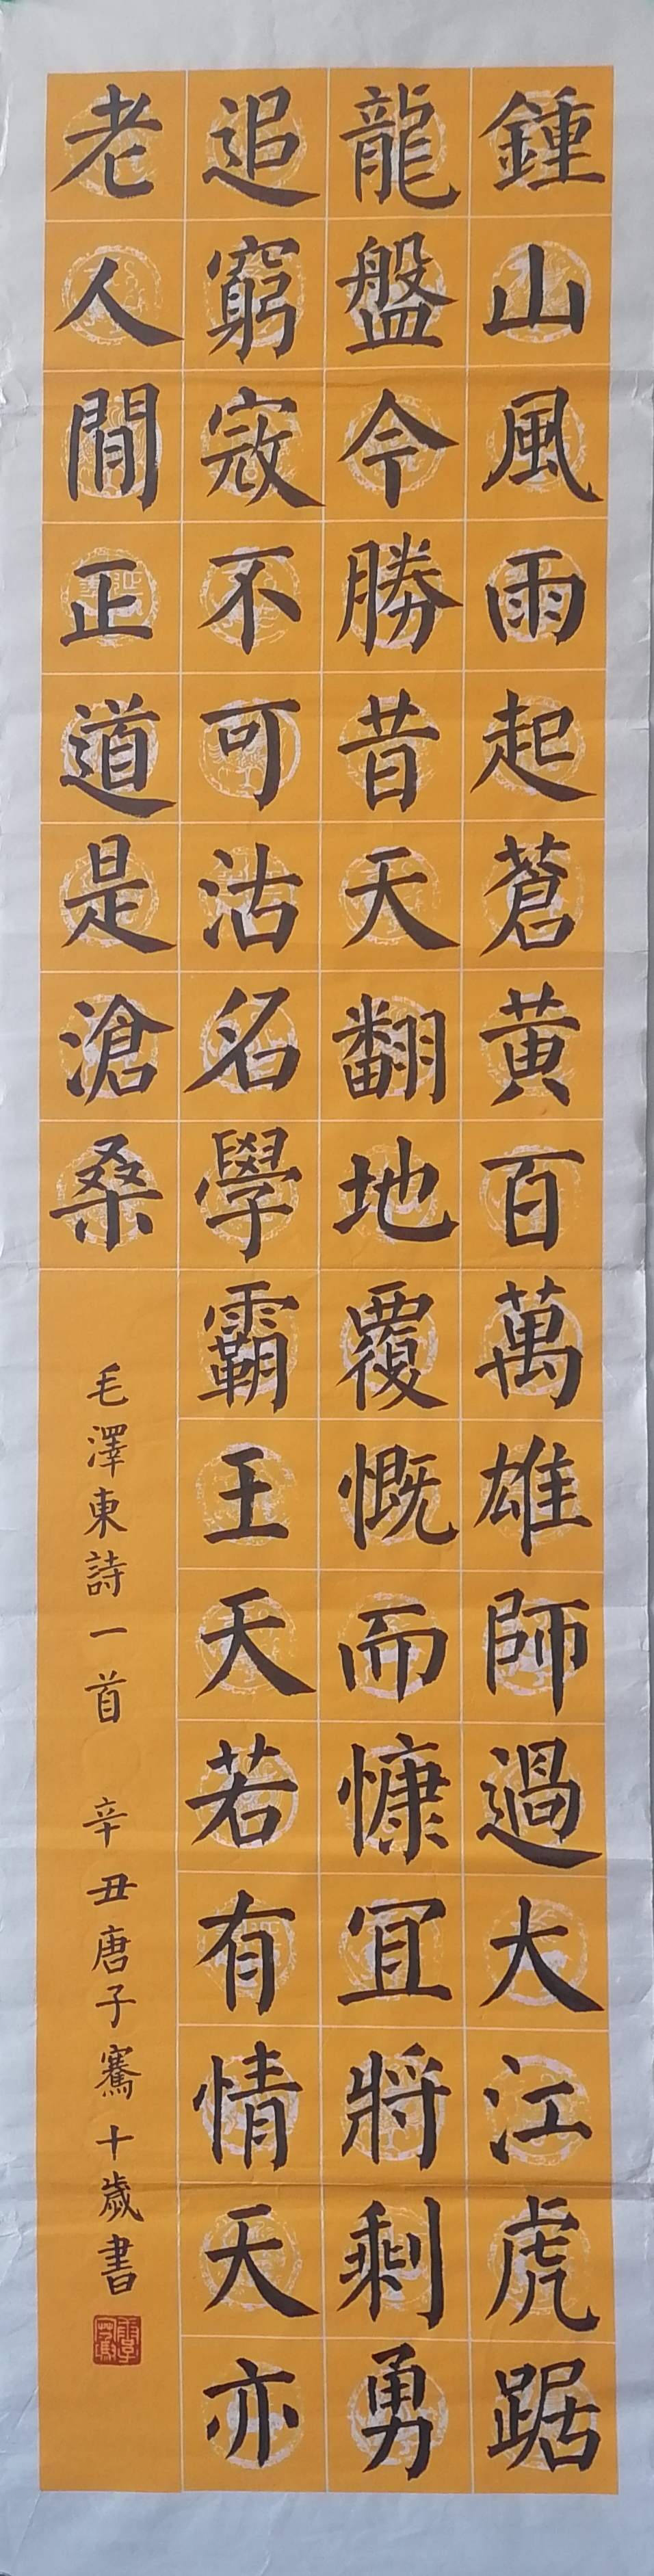 鍾山風雨起蒼黄百萬雄師過大江虎踞
龍盤今勝昔天翻地覆慨而慷宜將剩勇
追窮寇不可沽名學霸王天若有情天亦
老人間正道是滄桑
毛澤東詩一首 辛丑唐子騫十歲書